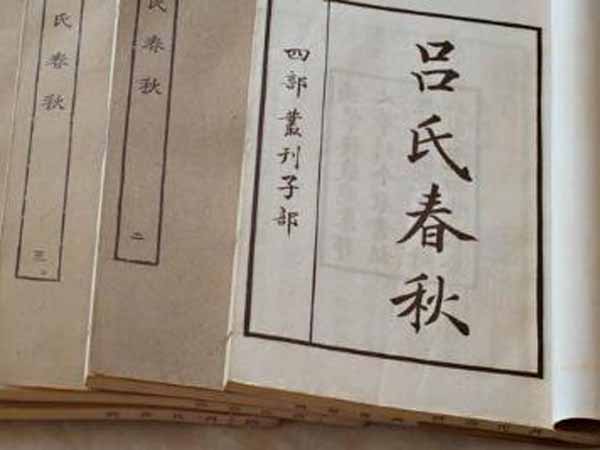 呂氏春秋
四部叢刊子部
氏春秋
二
氏春秋
三